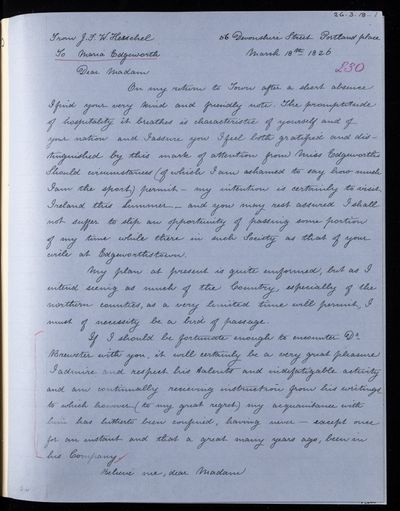 26-3-18-1
From J.F.W. Herschel 56 Devonshire Street Portland place
To Maria Edgeworth March 18th 1826
Dear Madam £30
On my return to Town after a short absence
I find your very kind and friendly note. The promptitude
of hospitality it breathes is characteristic of yourself and of
your nation and I assure you I feel both gratified and dis-
tinguished by this mark of attention from Miss Edgeworth.
Should circumstances (of which I am ashamed to say how much
I am the sport) permit - my intention is certainly to visit
Ireland this Summer - and you may rest assured I shall
not suffer to slip an opportunity of passing some portion
of my time while there in such Society as that of your
circle at Edgeworthstown.
My plan at present is quite unformed, but as I
intend seeing as much of the Country, especially of the
northern counties, as a very limited time will permit, I
must of necessity be a bird of passage.
If I should be fortunate enough to encounter Dr.
Brewster with you, it will certainly be a very great pleasure
I admire and respect his talents and indefatigable activity
and am continually receiving instruction from his writings
to which however (to my great regret) my acquaintance with
him has hitherto been confined, having never - except once
for an instant and that a great many years ago, been in
his Company
Believe me, dear Madam